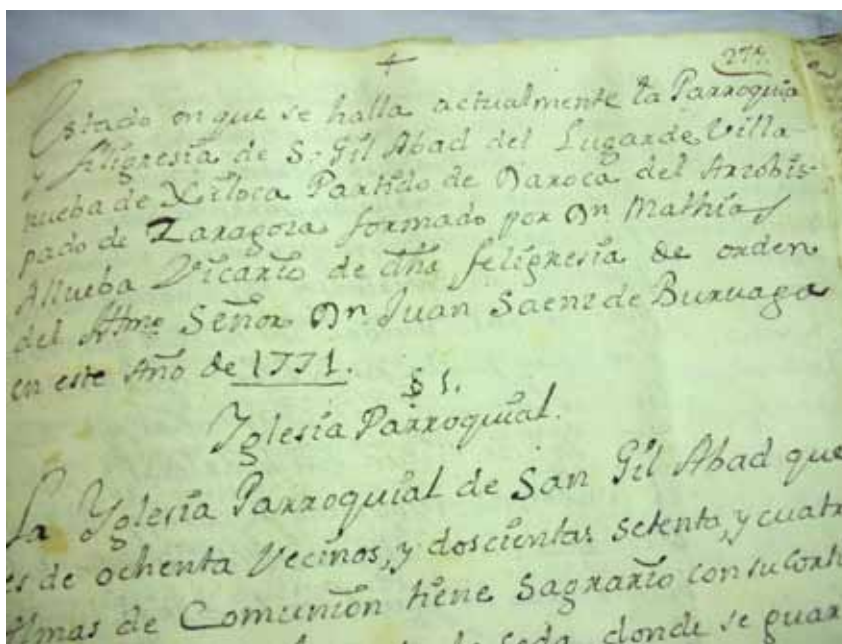 +
271.
Estado en que se halla actualmente la Parroquia
y feligresia de Sn. Gil Abad del Lugar de Villa-
nueba de Xiloca Partido de Daroca del Arzobis-
pado de Zaragoza formado por Dn Mathias
Allueba Vicario de dha feligresia de orden
del Illmo Señor Dn. Juan Saenz de Buruaga
en este Año de 1771.
§ 1.
Yglesia Parroquial.
La Yglesia Parroquial de San Gil Abad que
es de ochenta Vecinos, y doscientas setenta, y cuatr
Almas de Comunion tiene Sagrario con su Cort
de seda, donde se guar